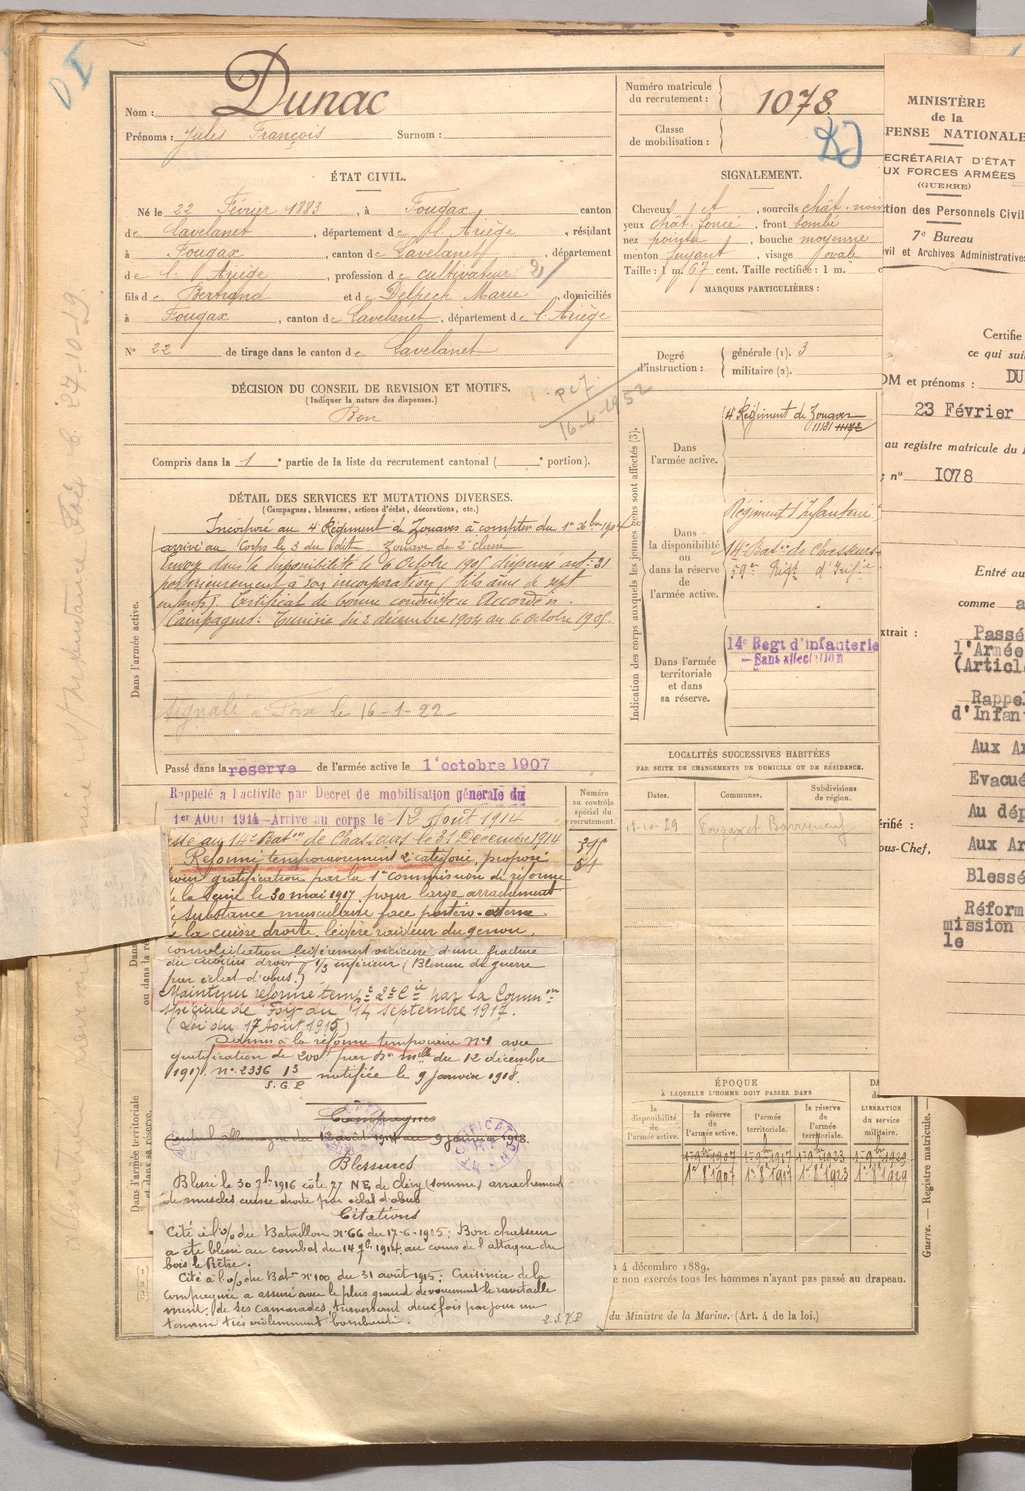 Nom : Dunac
Prénoms : Jules François Surnom :
Numéro matricule du recrutement : 1078
Classe de mobilisation :
ÉTAT CIVIL.
Né le 22 Février 1883, à Fougax canton
de Lavelanet, département de l'Ariège, résidant
à Fougax, canton de Lavelanet, département
de l'Ariège, profession de cultivateur
fils de Bertrand et de Delpech Marie, domiciliés
à Fougax, canton de Lavelanet, département de l'Ariège
N° 22 de tirage dans le canton de Lavelanet
SIGNALEMENT.
Cheveux et, sourcils chât.
yeux chât. foncé, front bombé
nez pointu, bouche moyenne
menton fuyant, visage ovale
Taille : 1 m. 67 cent. Taille rectifiée : 1 m. c
MARQUES PARTICULIÈRES :
Degré d'instruction : générale (1). 3
militaire (2).
DÉCISION DU CONSEIL DE REVISION ET MOTIFS.
(Indiquer la nature des dispenses.)
Bon
16-4-1952
Compris dans la 1e partie de la liste du recrutement cantonal ( e portion).
DÉTAIL DES SERVICES ET MUTATIONS DIVERSES.
(Campagnes, blessures, actions d'éclat, décorations, etc.)
Dans l'armée active.
Incorporé au 4e Régiment de Zouaves à compter du 1er Xbre 1904
arrivé au Corps le 3 du dit. Zouave de 2e classe
Envoyé dans la disponibilité le 6 Octobre 1905 dispensé art. 21
postérieurement à son incorporation (fils aîné de sept
enfants). Certificat de bonne conduite Accordé.
Campagnes : Tunisie du 3 décembre 1904 au 6 octobre 1905.
Signalé Foix le 16-1-22
Passé dans la reserve de l'armée active le 1 octobre 1907
Rappelé à l'activité par Decret de mobilisation générale du
1er AOUT 1914 - Arrivé au corps le 12 Août 1914
Passé au 14e Baton de Chasseurs le 31 Décembre 1914
Réformé temporairement 2e catégorie, proposé
pour gratification par la 1e commission de réforme
le 30 mai 1917 pour large arrachement
substance musculaire face postéro-externe
de la cuisse droite, légère raideur du genou,
consolidation légèrement vicieuse d'une fracture
du cubitus droit 1/3 inférieur (Blessure de guerre
par éclat d'obus.)
Maintenu réformé temp. 2e Cie par la Common
spéciale de Foix du 14 septembre 1917.
(Loi du 17 Août 1915)
Admis à la réforme temporaire N°1 avec
gratification de 200f par Don mlle du 12 décembre
1917. n° 2336 13 notifiée le 9 janvier 1918.
S.G.P.
Campagnes
Contre l'allemagne du 12 août 1914 au 9 janvier 1918.
Blessures
Blessé le 30 7bre 1916 côte 27 N.E. de Cléry (Somme) arrachement
de muscles cuisse droite par éclat d'obus
Citations
Cité à l'o/ du Bataillon N°66 du 17-6-1915 : Bon chasseur
a été blessé au combat du 14 1914 au cours de l'attaque du
bois le Prêtre.
Cité à l'o/ du Baton N°100 du 31 août 1915 : Cuisinier de la
compagnie a assuré avec le plus grand dévouement le ravitaille
ment de ses camarades, traversant deux fois par jour un
terrain très violemment bombardé.
Numéro au contrôle spécial du recrutement.
Indication des corps auxquels les jeunes gens sont affectés (3).
Dans l'armée active.
4e Régiment de Zouaves
Dans la disponibilité ou dans la réserve de l'armée active.
Régiment d'Infanterie
14e Baton de Chasseurs
59e Régt d'Infie
Dans l'armée territoriale et dans sa réserve.
14e Regt d'infanterie
— Sans affectation
LOCALITÉS SUCCESSIVES HABITÉES
PAR SUITE DE CHANGEMENTS DE DOMICILE OU DE RÉSIDENCE.
Dates. Communes. Subdivisions de région.
Fougax et Barrineuf
ÉPOQUE
À LAQUELLE L'HOMME DOIT PASSER DANS
la disponibilité de l'armée active. la réserve de l'armée active. l'armée territoriale. la réserve de l'armée territoriale. LIBÉRATION du service militaire.
1er 9bre 1907 1er 9bre 1917 1er 9bre 1923 1er 9bre 1929
1er 8 1907 1er 8 1917 1er 8 1923 1er 8 1929
4 décembre 1889.
e non exercés tous les hommes n'ayant pas passé au drapeau.
du Ministre de la Marine. (Art. 4 de la loi.)
Guerre. — Registre matricule.
Dans l'armée territoriale et dans sa réserve.
MINISTÈRE
de la
FENSE NATIONALE
ECRÉTARIAT D'ÉTAT
UX FORCES ARMÉES
(GUERRE)
tion des Personnels Civil
7e Bureau
ivil et Archives Administratives
Certifie
ce qui suit
OM et prénoms : DU
23 Février
au registre matricule du
n° 1078
Entré au
comme
xtrait : Passé
l'Armée
(Articl
Rappel
d'Infan
Aux Ar
Evacué
Au dép
érifié :
ous-Chef,
Aux Ar
Blessé
Réform
mission
le